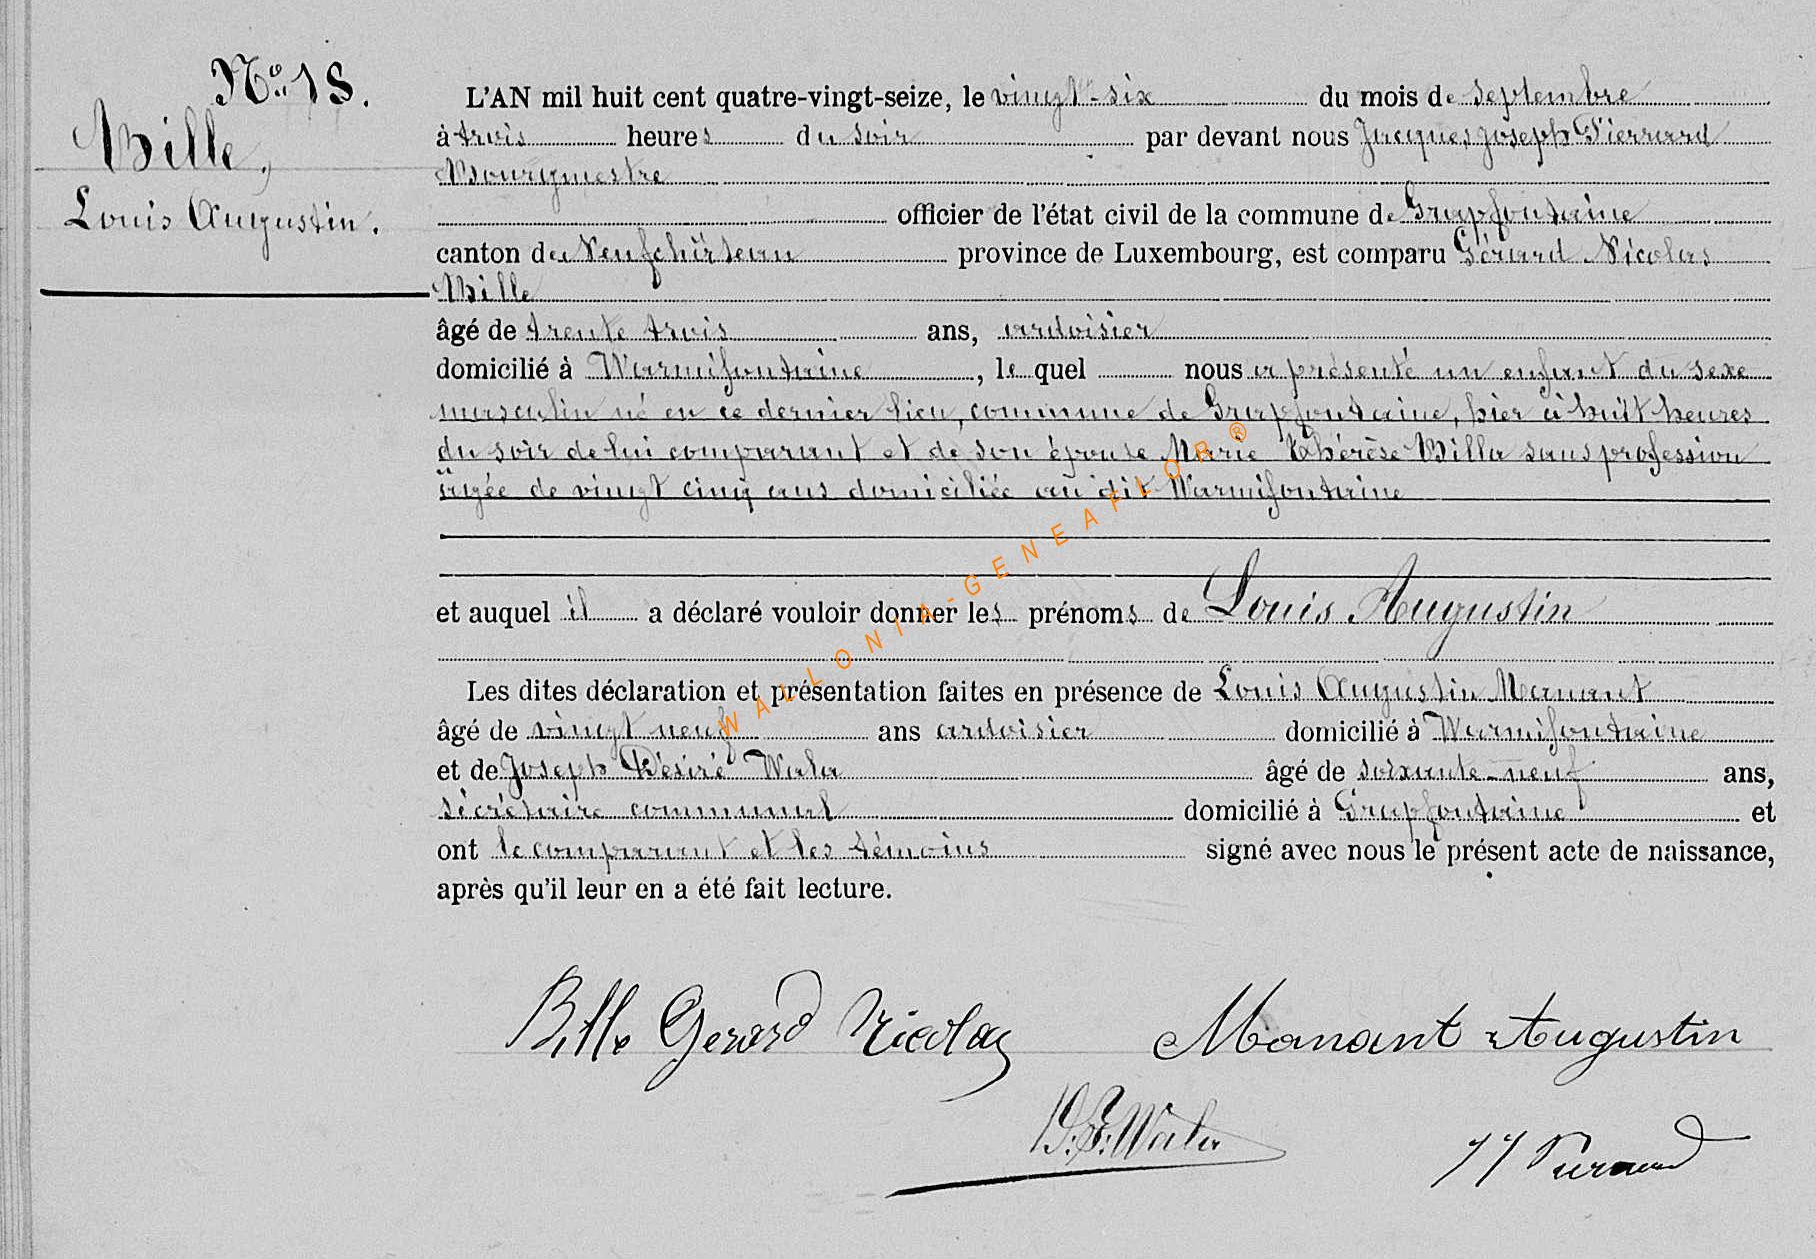 N° 18.
Bille,
Louis Augustin.
L'AN mil huit cent quatre-vingt-seize, le vingt-six du mois de septembre
à trois heures du soir par devant nous Jacques Joseph Pierrard
Bourgmestre
officier de l'état civil de la commune de Grapfontaine
canton de Neufchâteau province de Luxembourg, est comparu Gérard Nicolas
Bille
âgé de trente trois ans, ardoisier
domicilié à Warmifontaine, le quel nous a présenté un enfant du sexe
masculin né en ce dernier lieu, commune de Grapfontaine, hier à huit heures
du soir de lui comparant et de son épouse Marie Thérèse sans profession
âgée de vingt cinq ans domiciliée au dit Warmifontaine
et auquel il a déclaré vouloir donner les prénoms de Louis Augustin
Les dites déclaration et présentation faites en présence de Louis Augustin Manant
âgé de vingt neuf ans ardoisier domicilié à Warmifontaine
et de Joseph Désiré Wala âgé de soixante-neuf ans,
sécrétaire communal domicilié à Grapfontaine et
ont le comparant et les témoins signé avec nous le présent acte de naissance,
après qu'il leur en a été fait lecture.
WALLONIA-GENEAFLOR®
Bille Gerard Nicolas Manant Augustin
JJ Pierrard